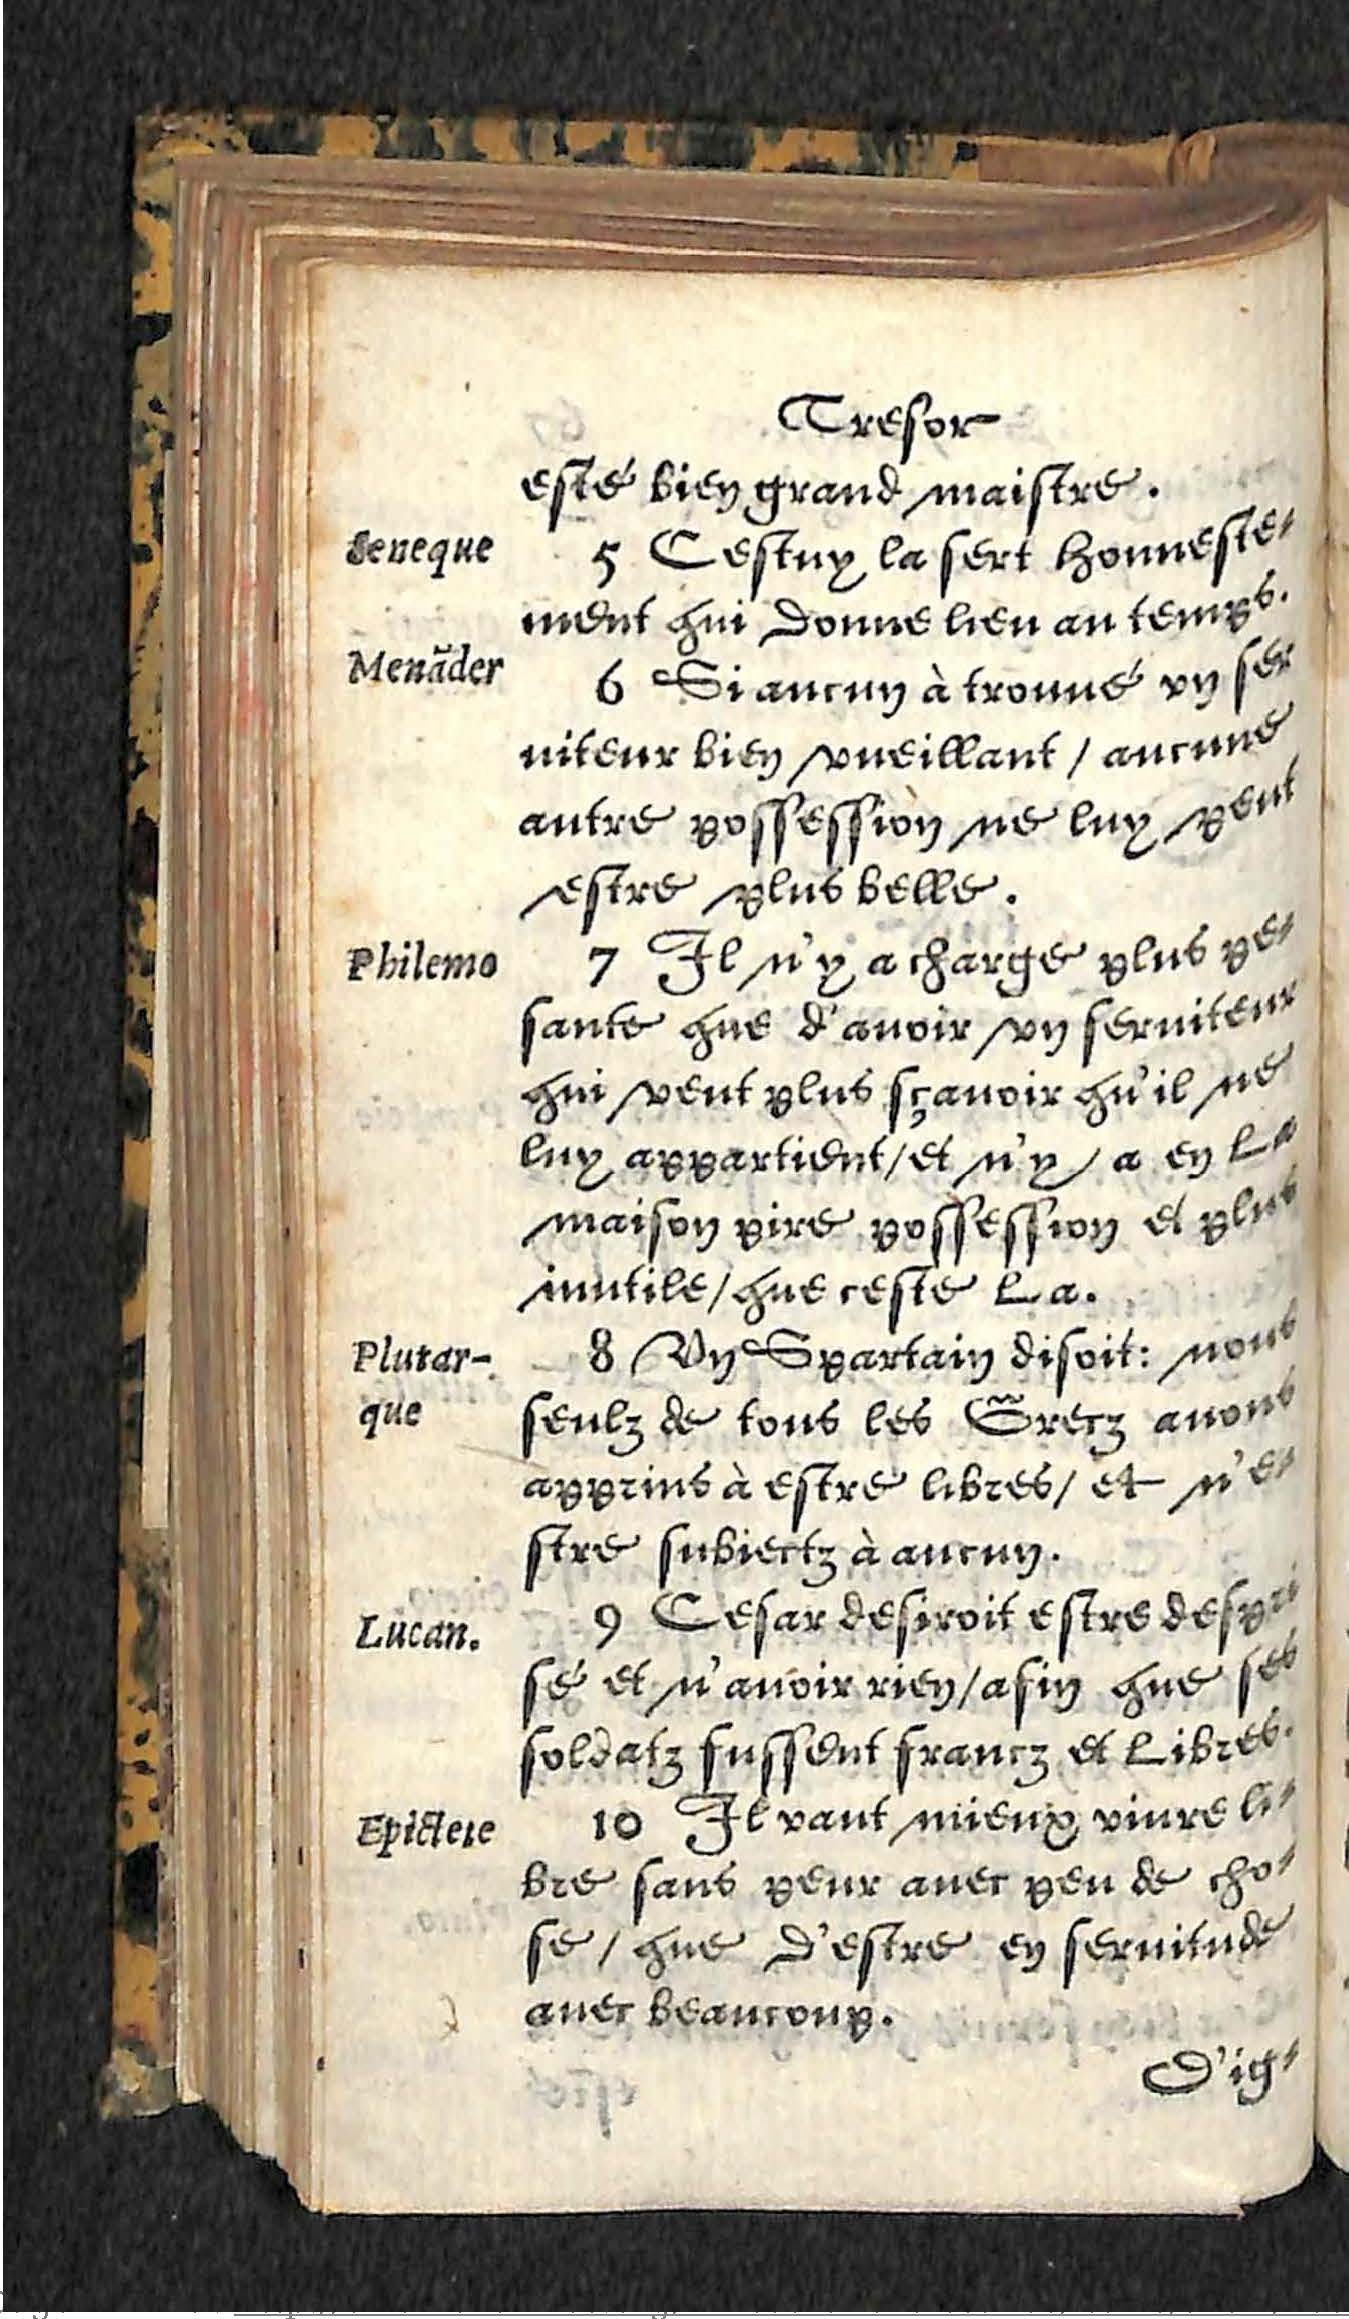 Tresor
esté bien grand maistre.
Seneque
5 Cestuy la sert honneste-
ment qui donne lieu au temps.
Menãder
6 Si aucun à trouué vn ser
uiteur bien vueillant / aucune
autre possession ne luy peut
estre plus belle.
Philemo
7 Il n'y a charge plus pe-
sante que d'auoir vn seruiteur
qui veut plus sçauoir qu'il ne
luy appartient / et n'y / a en la
maison pire possession et plus
inutile / que ceste la.
Plutar-
que
8 Vn Spartain disoit: nous
seulz de tous les Grecz auons
apprins à estre libres / et n'e-
stre subiectz à aucun.
Lucan.
9 Cesar desiroit estre despri
sé et n'auoir rien / afin que ses
soldatz fussent francz et libres.
Epictete
10 Il vaut mieux viure li-
bre sans peur auec peu de cho-
se / que d'estre en seruitude
auec beaucoup.
D'ig-